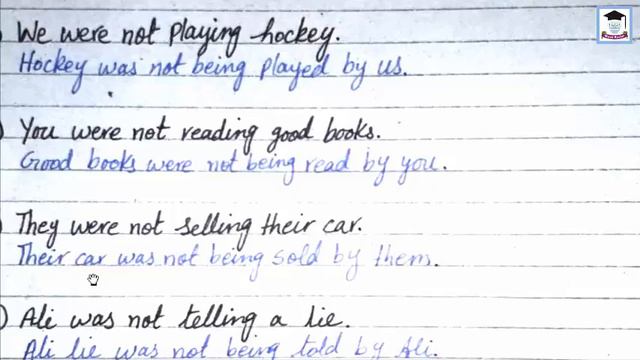 ) We were not playing hockey.
Hockey was not being played by us.
) You were not reading good books.
Good books were not being read by you.
) They were not selling their car.
Their car was not being sold by them.
) Ali was not telling a lie.
Ali lie was not being told by Ali.